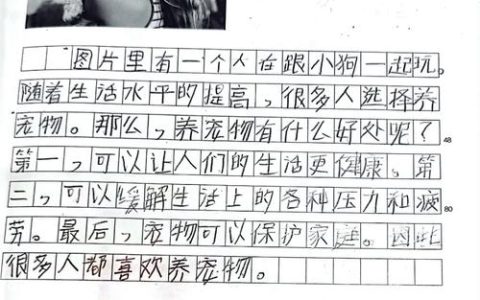 图片里有一个人在跟小狗一起玩。
随着生活水平的提高，很多人选择养
宠物。那么，养宠物有什么好处呢？
48
第一，可以让人们的生活更健康。第
二，可以缓解生活上的各种压力和疲
80
劳。最后，宠物可以保护家庭。因此
很多人都喜欢养宠物。